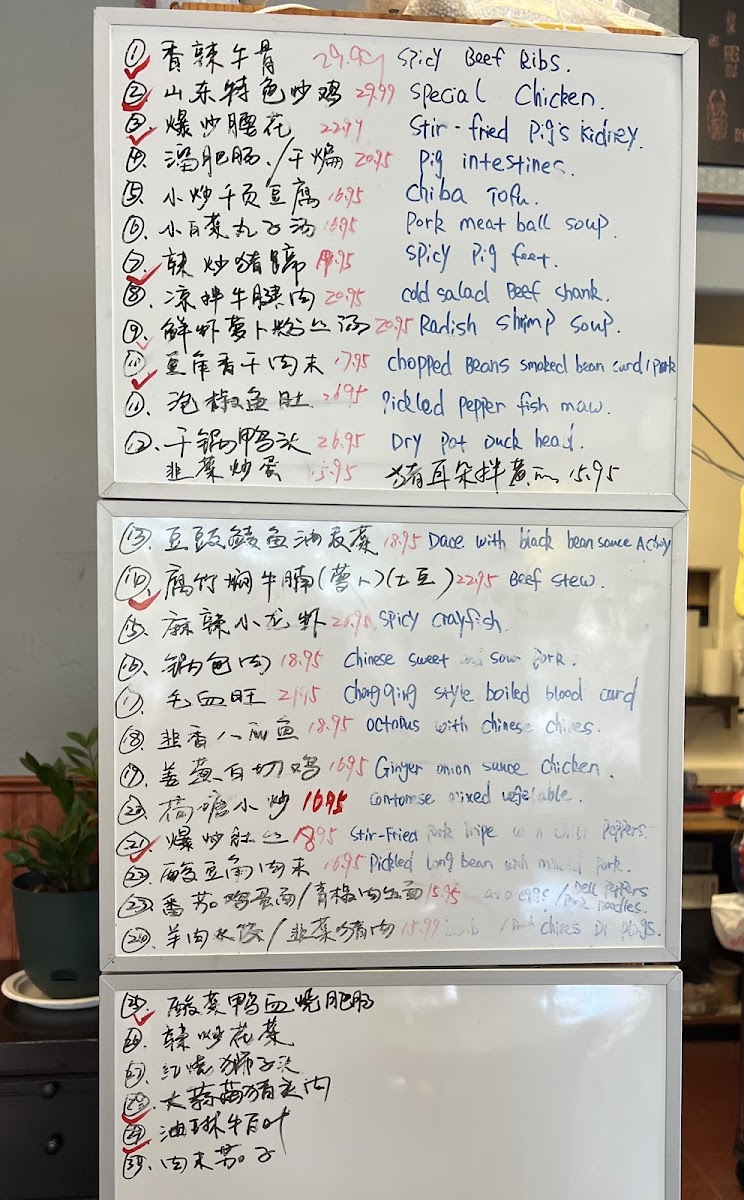 ① 香辣牛骨 29.99 Spicy Beef Ribs.
② 山东特色炒鸡 29.99 Special Chicken.
③ 爆炒腰花 22.99 Stir-fried pig's kidney.
④ 溜肥肠./干煸 20.95 pig intestines.
⑤ 小炒千页豆腐 16.95 Chiba Tofu.
⑥ 小白菜丸子汤 16.95 Pork meat ball soup.
⑦ 辣炒猪蹄 19.95 Spicy Pig feet.
⑧ 凉拌牛腱肉 20.95 Cold salad Beef Shank.
⑨ 鲜虾萝卜粉丝汤 20.95 Radish Shrimp soup.
⑩ 豆角香干肉末 17.95 chopped Beans smoked bean curd/pork
⑪ 泡椒鱼肚 26.95 Pickled pepper fish maw.
⑫ 干锅鸭头 26.95 Dry Pot Duck head.
韭菜炒蛋 15.95 猪耳朵拌黄瓜 15.95
⑬ 豆豉鲮鱼油麦菜 18.95 Dace with black bean sauce
⑭ 腐竹焖牛腩(萝卜)(土豆) 22.95 Beef stew.
⑮ 麻辣小龙虾 26.95 Spicy crayfish.
⑯ 锅包肉 18.95 Chinese sweet and sour pork.
⑰ 毛血旺 21.95 Chongqing style boiled blood curd
⑱ 韭香八爪鱼 18.95 octopus with chinese chives.
⑲ 姜葱白切鸡 16.95 Ginger onion sauce chicken.
⑳ 荷塘小炒 16.95 cantonese mixed vegetable.
㉑ 爆炒肚丝 18.95 Stir-Fried pork tripe peppers.
㉒ 酸豆角肉末 16.95 Pickled long bean with minced pork.
㉓ 番茄鸡蛋面/青椒肉丝面 15.95 eggs/Bell peppers
Pork noodles.
㉔ 羊肉水饺/韭菜猪肉 15.99 Lamb / chives
㉕ 酸菜鸭血烧肥肠
㉖ 辣炒花菜
㉗ 红烧狮子头
㉘ 大蒜苗猪头肉
㉙ 油淋牛百叶
㉚ 肉末茄子